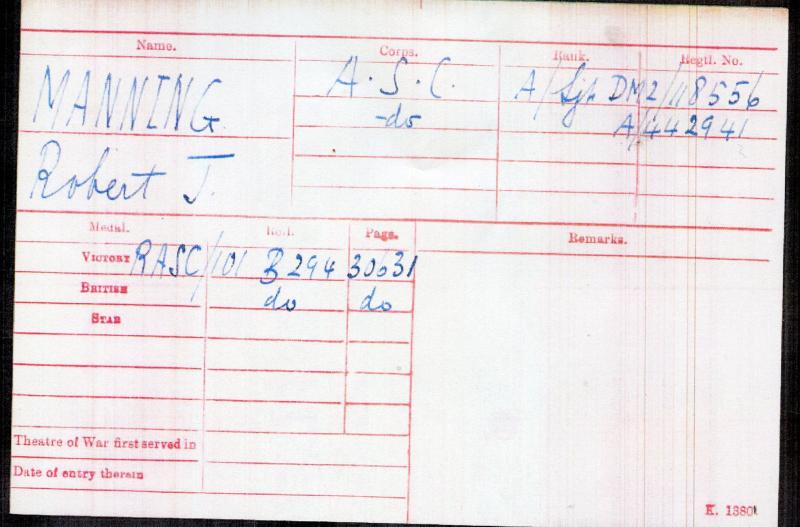 Name. Corps. Rank. Regtl. No.
MANNING A.S.C. A/Sjt DM2/118556
-do A/442941
Robert J.
Medal. Roll. Page. Remarks.
VICTORY RASC/101 B 294 30631
BRITISH do do
STAR
Theatre of War first served in
Date of entry therein
K. 1380